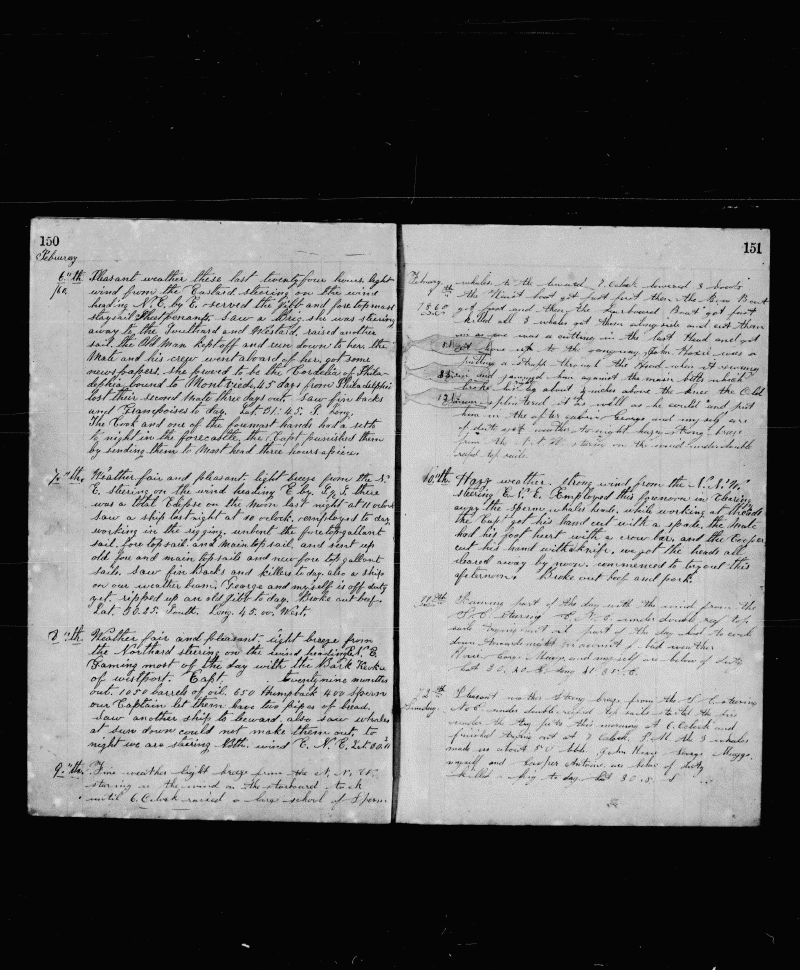 150
Februray
6"th Pleasant weather these last twenty four hours, light
/80. wind from the Eastard steering on the wind
heading N.E. by E. served the Jibb and fore topmast
staysail Saw a Brig. she was steering
away to the and Westard. raised another
sail, the Old Man Keptoff and run down to her, the
Mate and his crew went aboard of her, got some
newspapers, she proved to be the Cordelie of Phila-
delphia bound to 45 days from Philadelphia
lost their second Mate three days out. Saw fin backs
and to day. Lat 31. 45. S. Long.
The Cook and one of the foremast hands had a
to night in the forecastle, the Capt punished them
by sending them to Mast head three hours apiece.
7"th. Weather fair and pleasant. light breeze from the N.
E. steering on the wind heading E by. there
was a total on the Moon last night at 11 oclock
saw a ship last night at 10 oclock, employed to day
working in the rigging. unbent the fore topgallant
sail, fore topsail and Main topsail, and sent up
old fore and main topsails and new fore topgallant
sails, saw fin Backs and Killers to day. also a ship
on our weather beam. George and myself is off duty
yet. ripped up an old Jibb to day. Broke out beef.
Lat. 30. 25. South. Long. 45. 00. West.
8"th Weather fair and pleasant. light breeze from
the Northard steering on the wind heading E.N.E
Gaming most of the day with the Bark
of westport. Capt. . twenty nine months
out. 1050 barrels of oil. 650 humpback 400 Sperm
our Captain let them have two pipes of bread.
saw another ship to leward. also saw whales
at sun down could not make them out, to
night we are steering wind E. N. E. Lat 30.
9"th. Fine weather light breeze from the N. N. W.
steering on the wind on the starboard tack
until 6. Oclock raised a large school of Sperm
151
February whales to the leward 7. Oclock lowered 3 boats
9"th the Waist boat got fast first then the Bow Boat
1880 got fast and then the Larboard Boat got fast
killed all 3 whales got them along side and cut them
in as one was a cutting in the last Head and got
to the gangway John Havir was a
putting a strap through the Head when it swung
in and jammed him against the main bitts which
broke his leg about 4 inches above the knee the Old
Man splintered it as well as he could and put
him in the after cabin George and my self are
of duty yet weather to night hazy strong breeze
from the N. N. W. steering on the wind under double
reefd top sails
10"th Hazy weather. strong wind from the N. N. W.
steering E. N. E. Employed this forenoon in Clearing
away the sperm whales heads, while working at the heads
the Cap. got his hand cut with a spade, the Mate
had his foot hurt with a crow bar, and the Cooper
cut his hand with a knife, we got the heads all
cleared away by noon. commenced to try out this
afternoon. Broke out beef and pork.
11"th part of the day with the wind from the
S. E. Steering E. N. E. under double reef top
sails trying out oil part of the day had to cool
down towards night on account of bad weather
and my self are below of duty
Lat 30.
12"th Pleasant weather strong breeze from the S. E. steering
Sunday. N. E. under double reefed top sails started the fire
under the try pots this morning at 6. Oclock and
finished trying out at 7 Oclock P. M. the 3 whales
made us about 50 bbls. John Havir George
myself and Cooper Antone are below of duty
killed a hog to day Lat 30. S. S